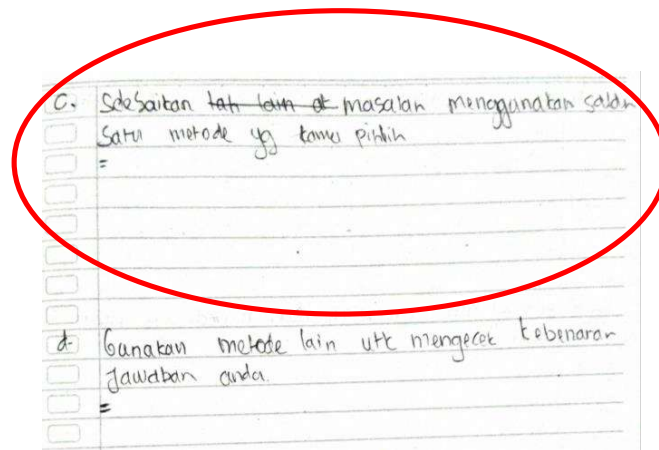 C. Selesaikan lain masalah menggunakan salah
satu metode yg kamu pihlih
=
d. Gunakan metode lain utk mengecek kebenaran
Jawaban anda.
=